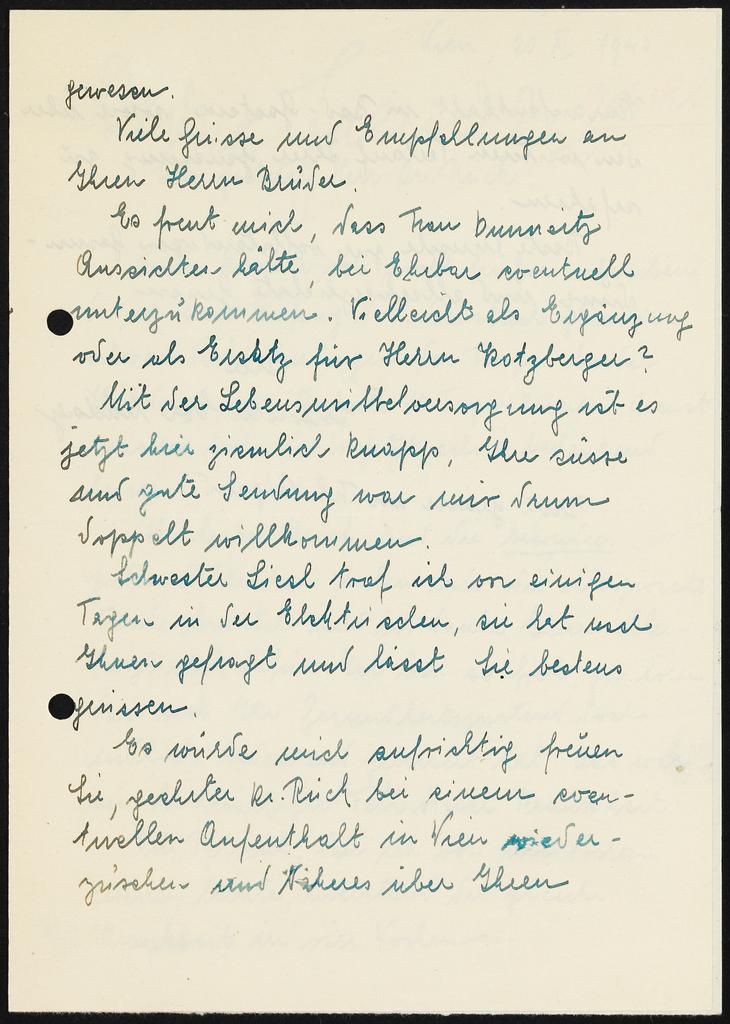 gewesen.
Viele Grüsse und Empfehlungen an
Ihren Herrn Brüder.
Es freut mich, dass Frau
Aussichten hätte, bei Ehrbar eventuell
unterzukommen. Vielleicht als Ergänzung
oder als Ersatz für Herrn Kotzberger?
Mit der Lebensmittelversorgung ist es
jetzt hier ziemlich knapp, Ihre süsse
und gute Sendung war mir drum
doppelt willkommen.
Schwester Liesl traf ich vor einigen
Tagen in der Elektrischen, sie hat nach
Ihnen gefragt und lässt Sie bestens
grüssen.
Es würde mich aufrichtig freuen
Sie, geehrter Dr. Rück bei einem even-
tuellen Aufenthalt in Wien wieder-
zusehen und Näheres über Ihren